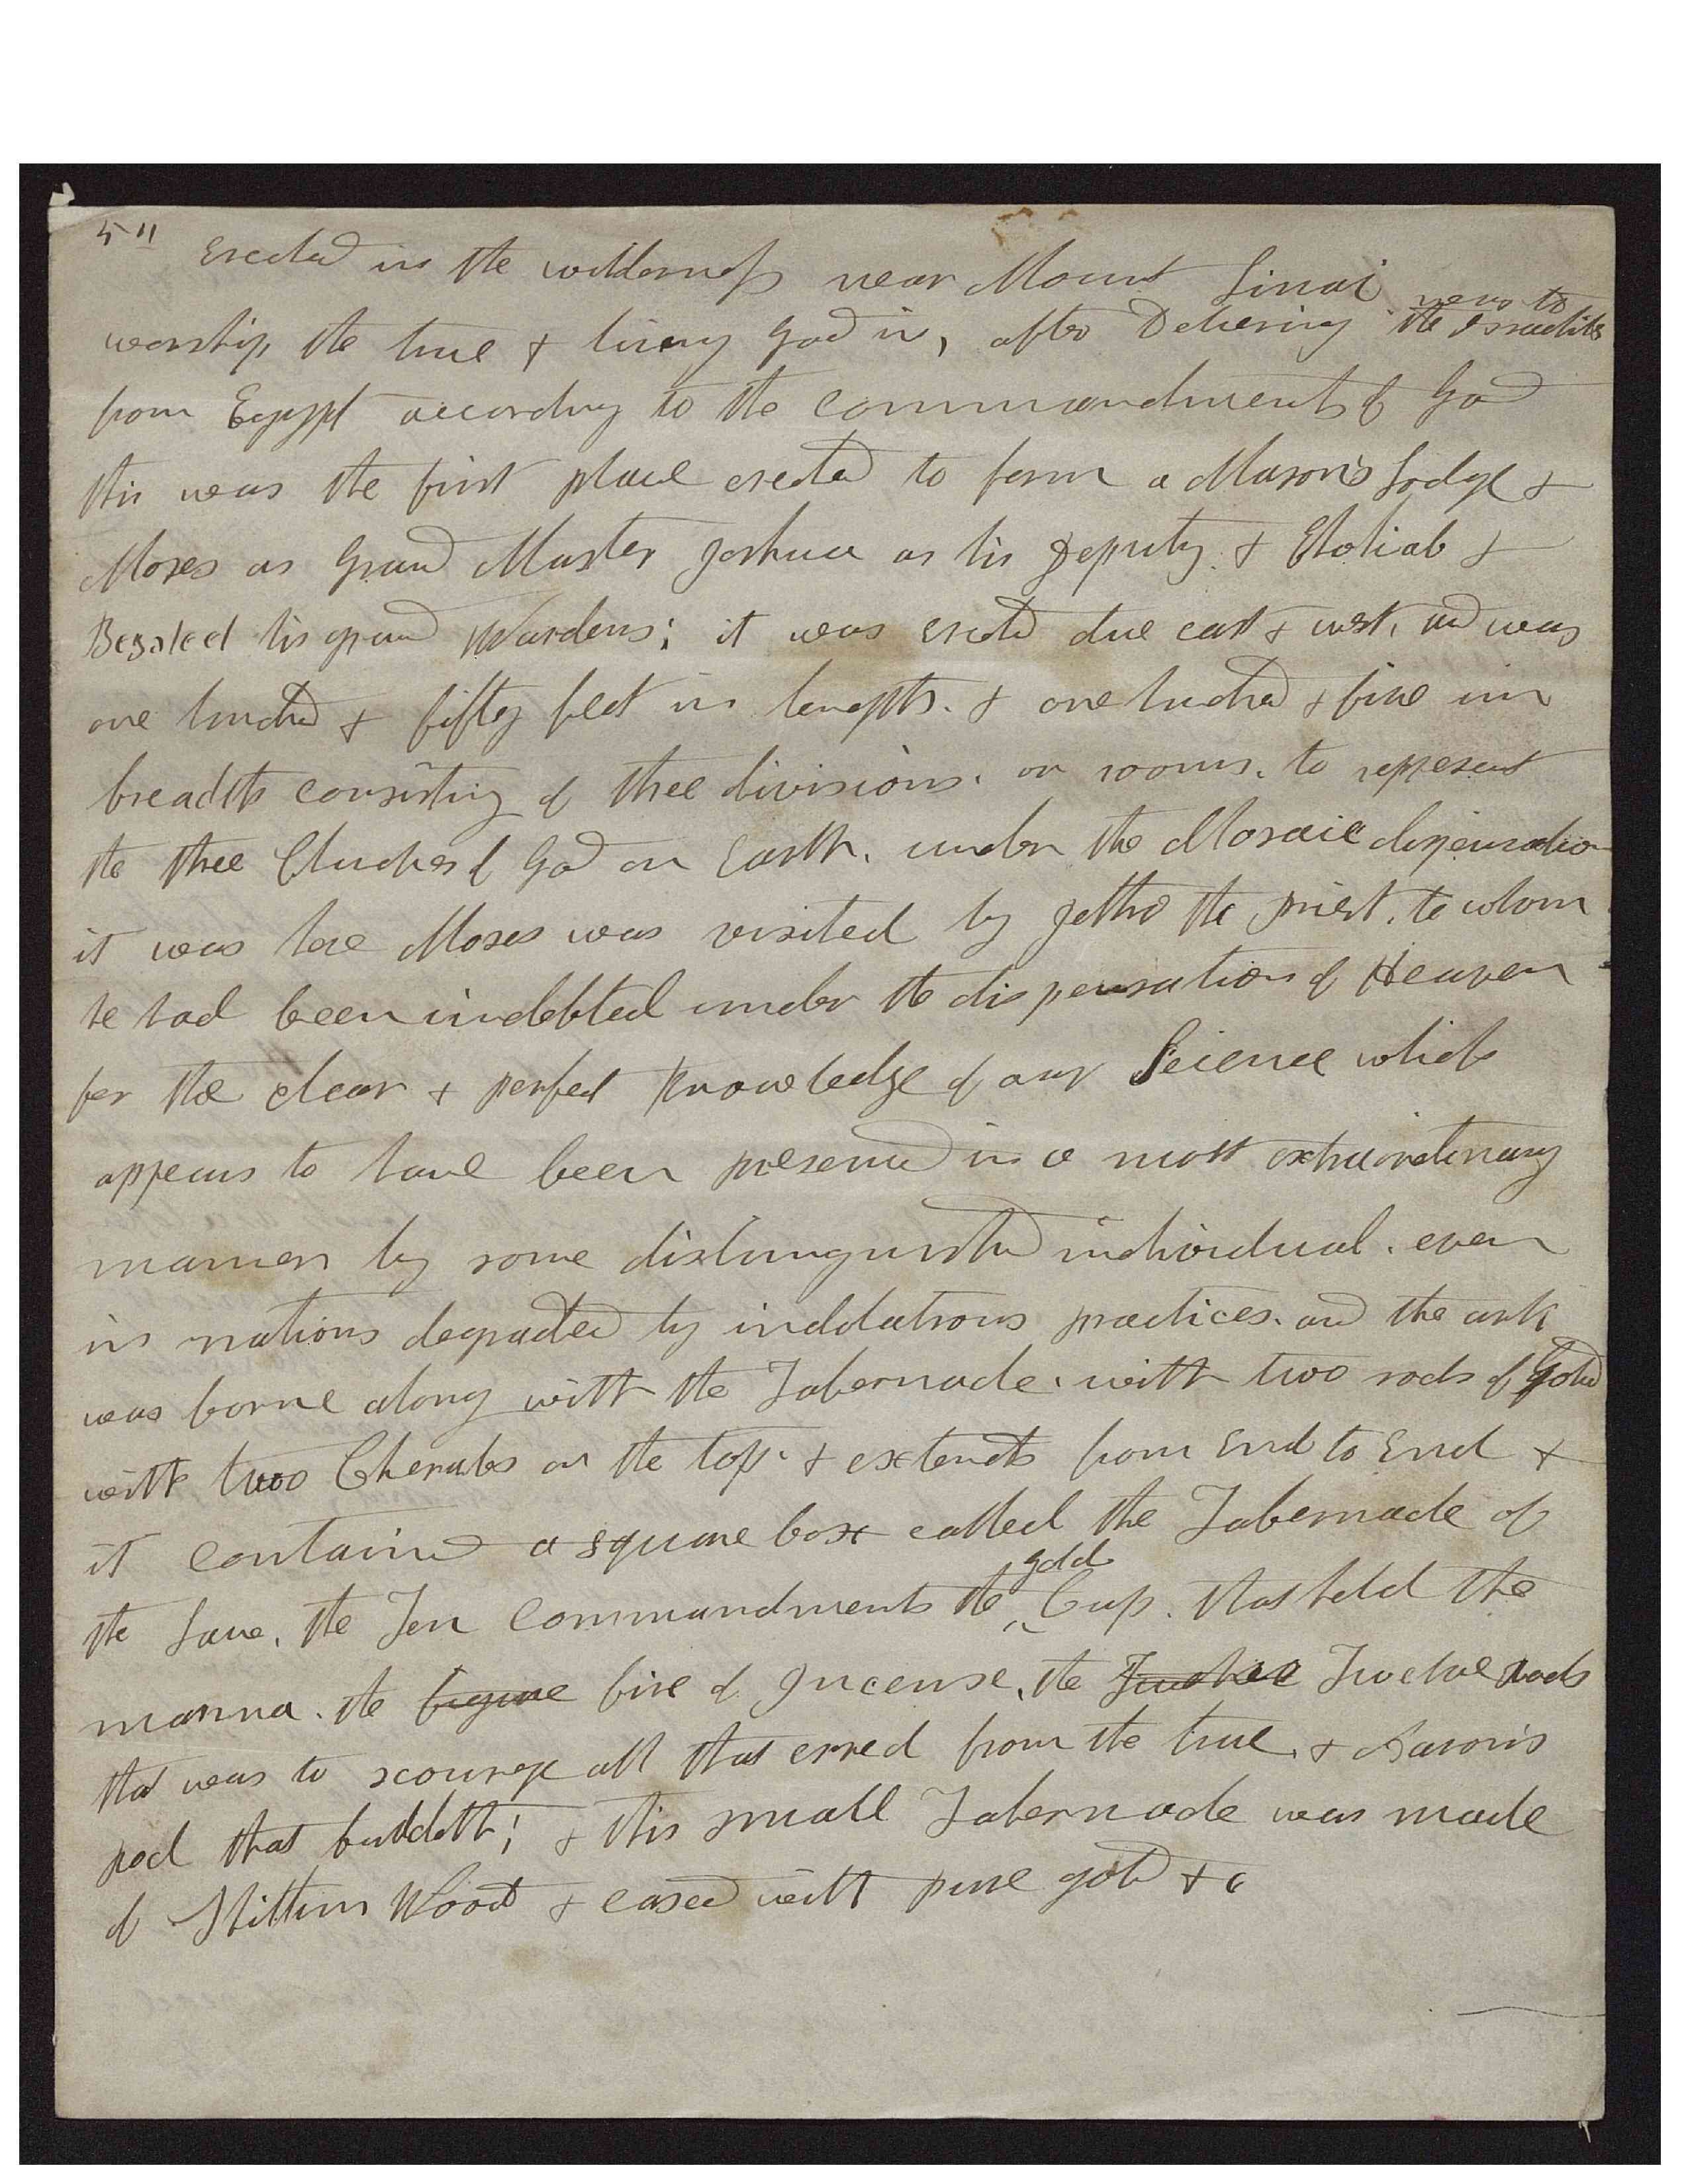 5"
Erected in the wilderness near Mount Sinai was to
worship the true & living God in, after Delivering the Israelites
from Egypt according to the commandments of God
this was the first place erected to form a Mason's Lodge &
Moses as Grand Master Joshua as his Deputy & Aholiab &
Bezaleel his grand Wardens; it was erected due east & west, and was
one hundred & fifty feet in length. & one hundred & five in
breadth consisting of three divisions. or rooms. to represent
the three Churches of God on Earth. under the Mosaic dispensation
it was here Moses was visited by Jethro the priest. to whom
he had been indebted under the dispensation of Heaven
for the clear & perfect knowledge of our Science which
appears to have been preserved in a most extraordinary
manner by some distinguished individual. even
in nations degraded by indolatrous practices. and the ark
was borne along with the Tabernacle. with two rods of Gold
with two Cherubs on the top. & extends from End to End &
it contained a square box called the Tabernacle of
the Law. the Ten Commandments the gold Cup. that held the
manna. the fire of Incense, the Twelve rods
that was to scourge all that erred from the true & Aaron's
rod that buddeth; & this small Tabernacle was made
of Shittim Wood & cased with pure gold &c